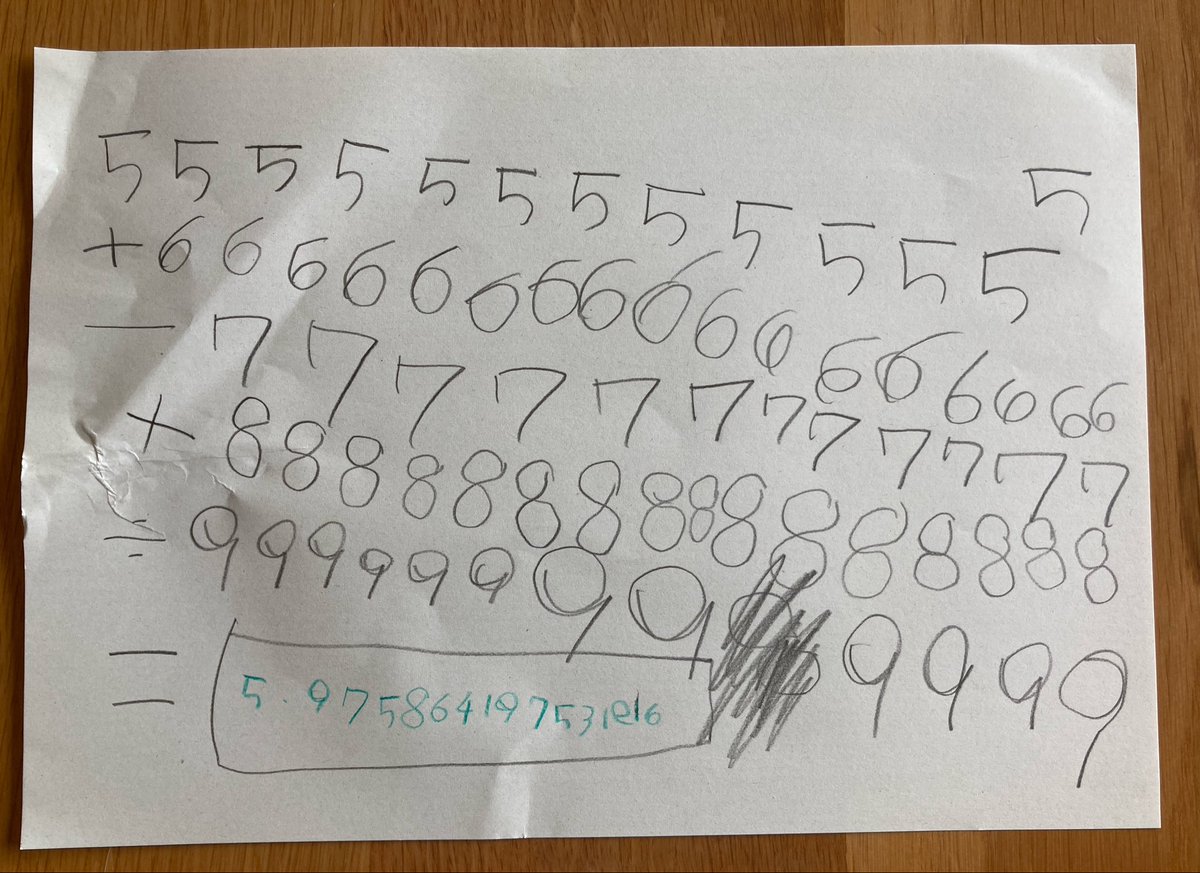 5555555555555
+66666666666666666
−777777777777
×8888888888888888
÷999999999999
=5.975864197531e16